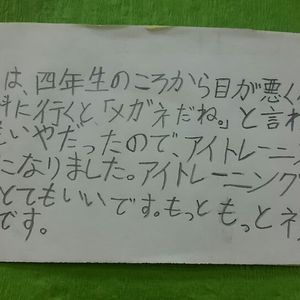 は、四年生のころから目が悪く
に行くと、「メガネだね。」と言わ
いやだったので、アイトレーニ
になりました。アイトレーニング
とてもいいです。もっともっとネ
です。